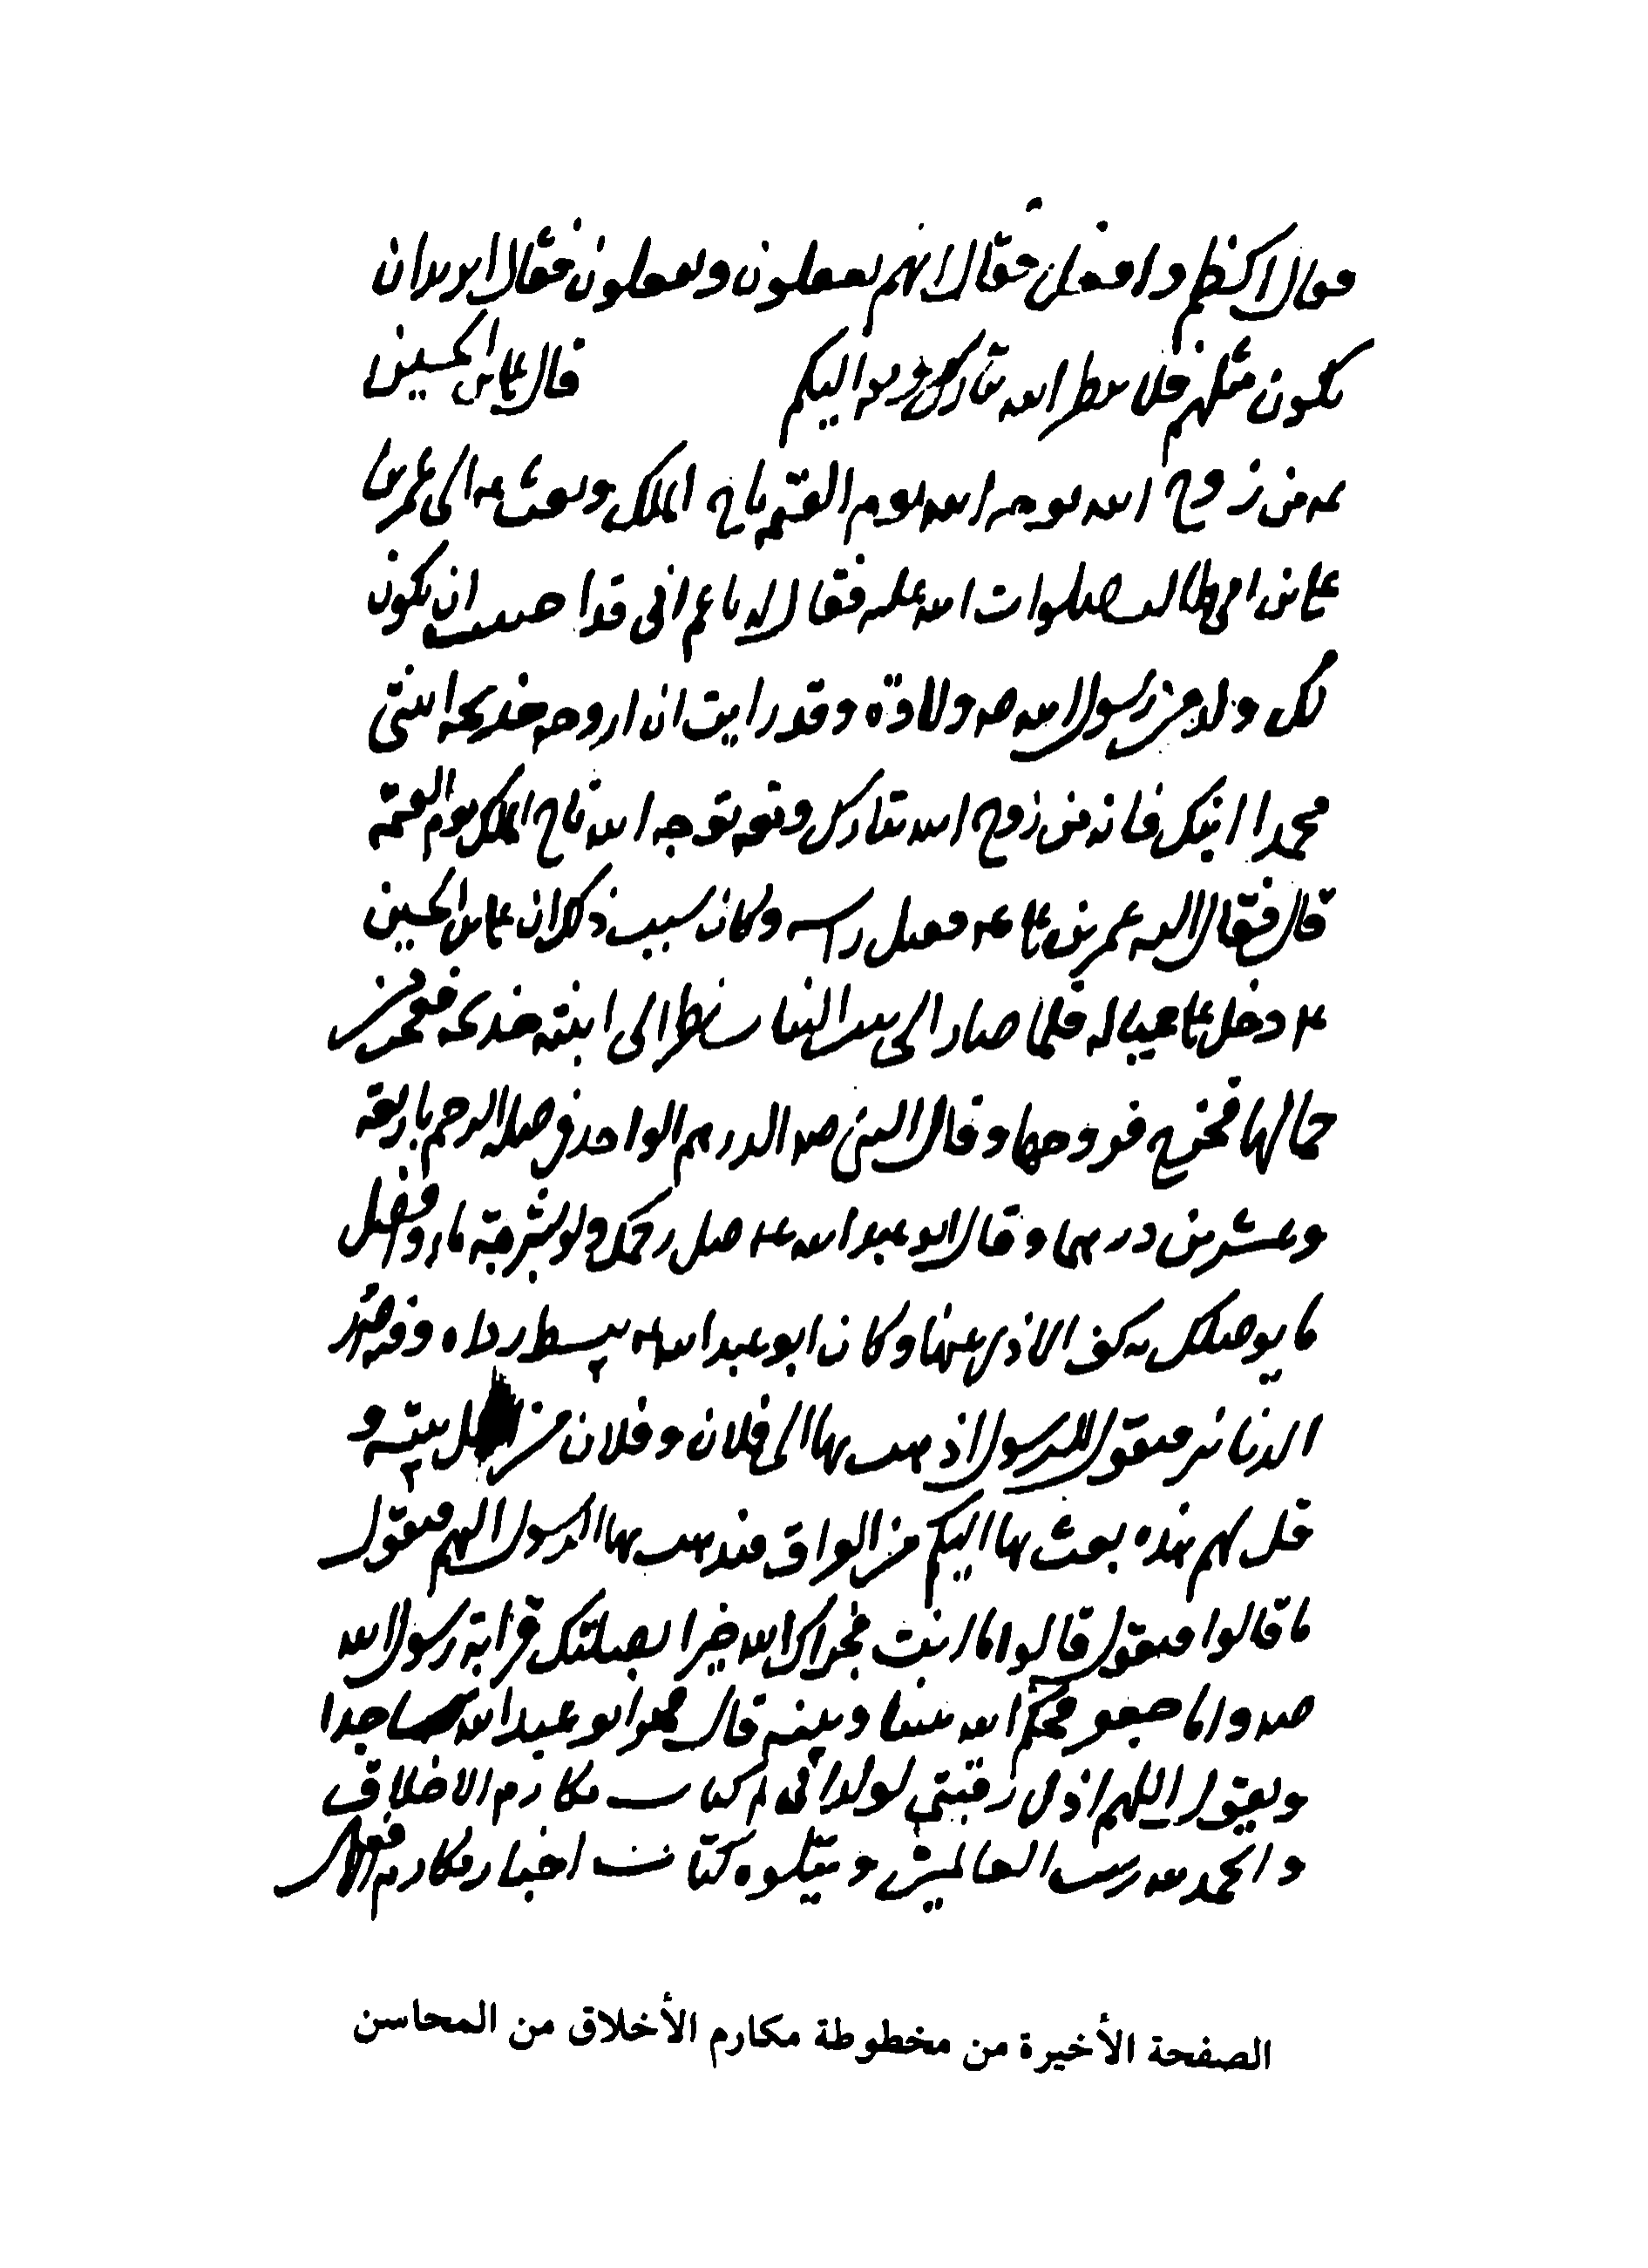 فقال اكظم وافعل فقال انهم يفعلون ويفعلون فقال اتريد ان
تكون مثلهم فلا ينظر الله تبارك وتعالى اليكم قال علي بن الحسين
عه من زوج لله توجه الله يوم القيمة بتاج الملك وبعث عه الى عمر بن
علي بن ابي طالب صلوات الله عليه فقال له يا عم اني قد احببت ان تكون
لك ولد من رسول الله صه ولادة وقد رايت ان ازوجه خديجة ابنتي
محمدا ابنك فانه من زوج لله تبارك وتعه توجه الله تاج الملك يوم القيمة
قال فقال اليه عمر بن علي عه فقبل راسه وكان سبب ذلك ان علي بن الحسين
عه دخل على عياله فلما صار الى النسا نظر الى ابنته خديجة فعجب من
جمالها فخرج فزوجها وقال النبي صه الدرهم الواحد في صلة الرحم باربعة
وعشرين درهما وقال ابو عبد الله عه صل رحمك ولو بشربة ماء وافضل
ما يوصلك به كف الاذى عنها وكان ابو عبد الله عه يبسط رداه وفيه صرر
الدنانير فيقول للرسول اذهب بها الى فلان وفلان من اهل بيته و
قل لهم هذه بعث بها اليكم من العراق فيذهب بها الرسول اليهم فيقول
ما قالوا فيقول قالوا اما انت فجزاك الله خيرا بصلتك قرابة رسول الله
صه واما جعفر فحكم الله بيننا وبينه قال فيخر ابو عبد الله ساجدا
ويقول اللهم اذل رقبتي لولد ابي تم كتاب مكارم الاخلاق
والحمد لله رب العالمين ويتلوه كتاب اختبار مكارم الافعال
الصفحة الأخيرة من مخطوطة مكارم الأخلاق من المحاسن